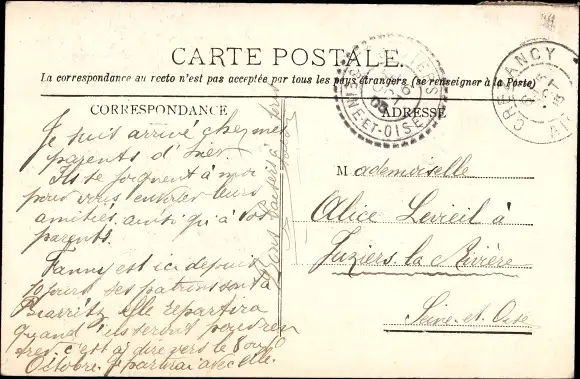 CARTE POSTALE.
La correspondance au recto n'est pas acceptée par tous les pays étrangers (se renseigner à la Poste)
CORRESPONDANCE
ADRESSE
Je suis arrivé chez mes
parents d'hier.
Ils se joignent à moi
pour vous envoyer leurs
amitiés ainsi qu'à vos
parents.
Fanny est ici depuis
jours ses patrons sont à
Biarritz elle repartira
quand ils seront pour ren
trer c'est à dire vers le 8 ou 10
Octobre. Je partirai avec elle.
Mademoiselle
Alice Levieil à
Juziers la Rivière
Seine-et-Oise
CREZANCY
SEINE-ET-OISE